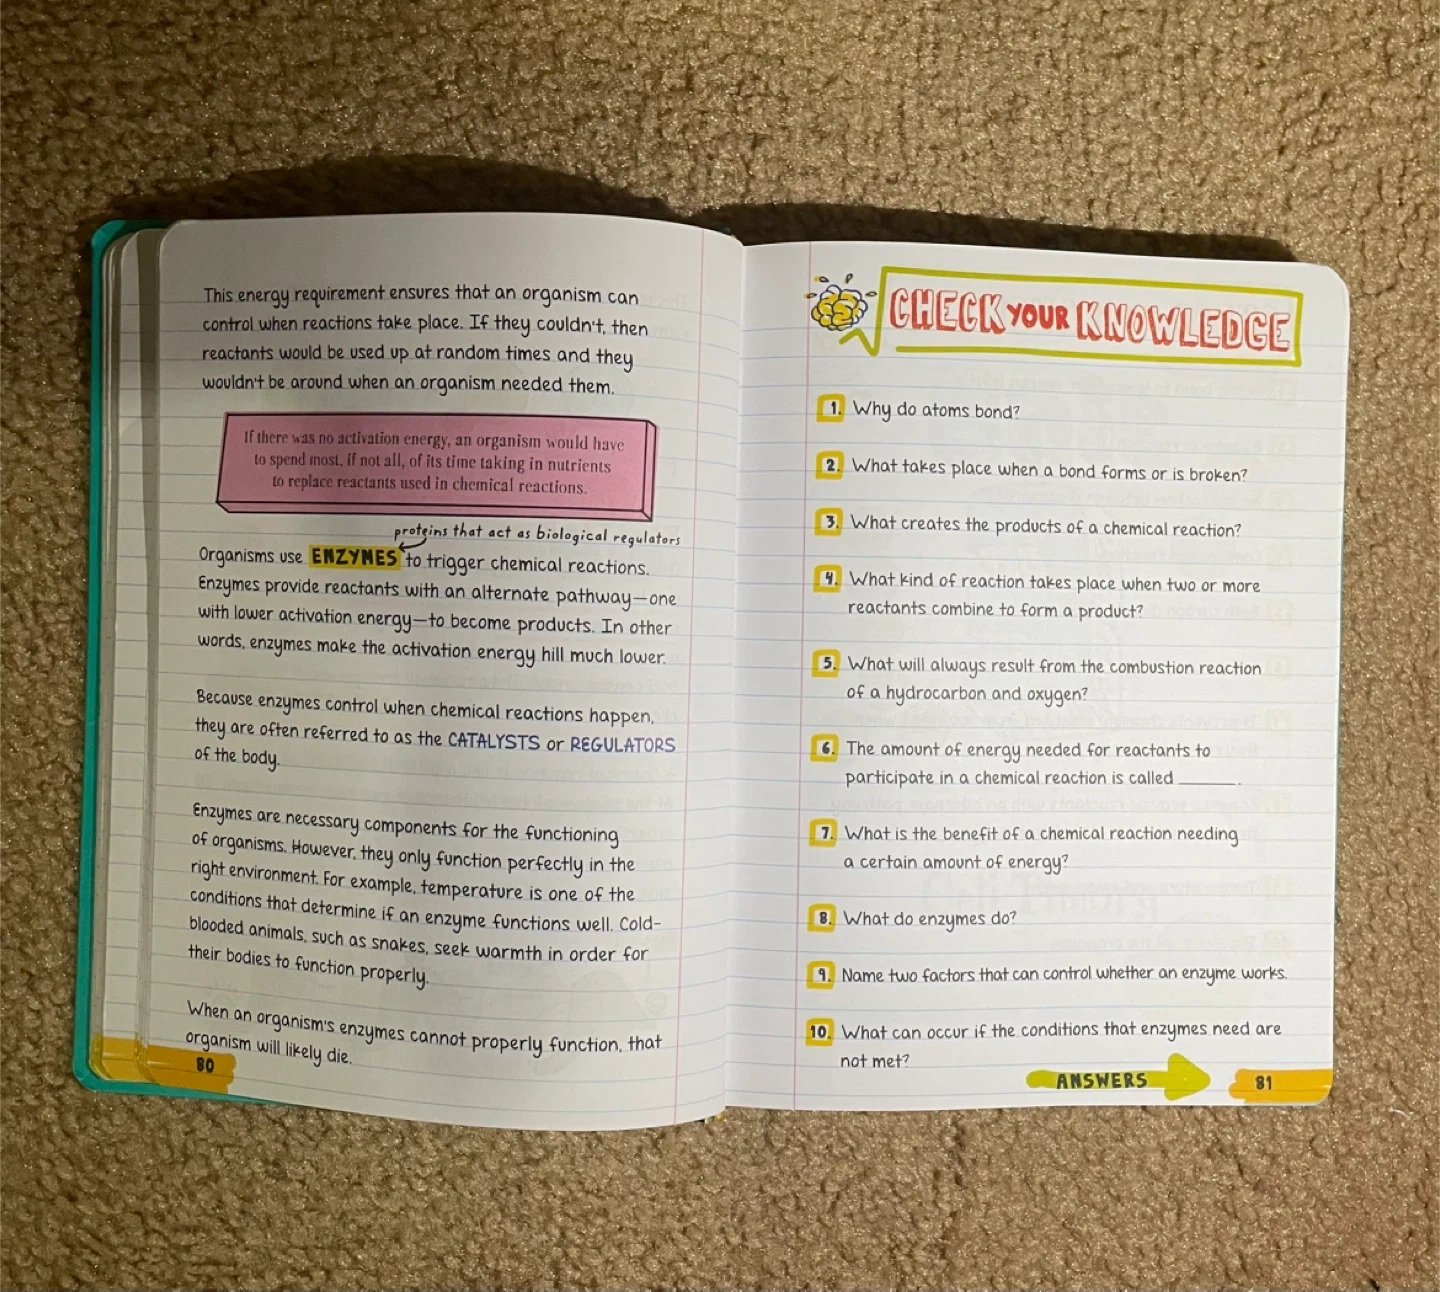 This energy requirement ensures that an organism can
control when reactions take place. If they couldn't, then
reactants would be used up at random times and they
wouldn't be around when an organism needed them.
If there was no activation energy, an organism would have
to spend most, if not all, of its time taking in nutrients
to replace reactants used in chemical reactions.
proteins that act as biological regulators
Organisms use ENZYMES to trigger chemical reactions.
Enzymes provide reactants with an alternate pathway—one
with lower activation energy—to become products. In other
words, enzymes make the activation energy hill much lower.
Because enzymes control when chemical reactions happen,
they are often referred to as the CATALYSTS or REGULATORS
of the body.
Enzymes are necessary components for the functioning
of organisms. However, they only function perfectly in the
right environment. For example, temperature is one of the
conditions that determine if an enzyme functions well. Cold-
blooded animals, such as snakes, seek warmth in order for
their bodies to function properly.
When an organism's enzymes cannot properly function, that
organism will likely die.
80
CHECK YOUR KNOWLEDGE
1. Why do atoms bond?
2. What takes place when a bond forms or is broken?
3. What creates the products of a chemical reaction?
4. What kind of reaction takes place when two or more
reactants combine to form a product?
5. What will always result from the combustion reaction
of a hydrocarbon and oxygen?
6. The amount of energy needed for reactants to
participate in a chemical reaction is called ______.
7. What is the benefit of a chemical reaction needing
a certain amount of energy?
8. What do enzymes do?
9. Name two factors that can control whether an enzyme works.
10. What can occur if the conditions that enzymes need are
not met?
ANSWERS
81